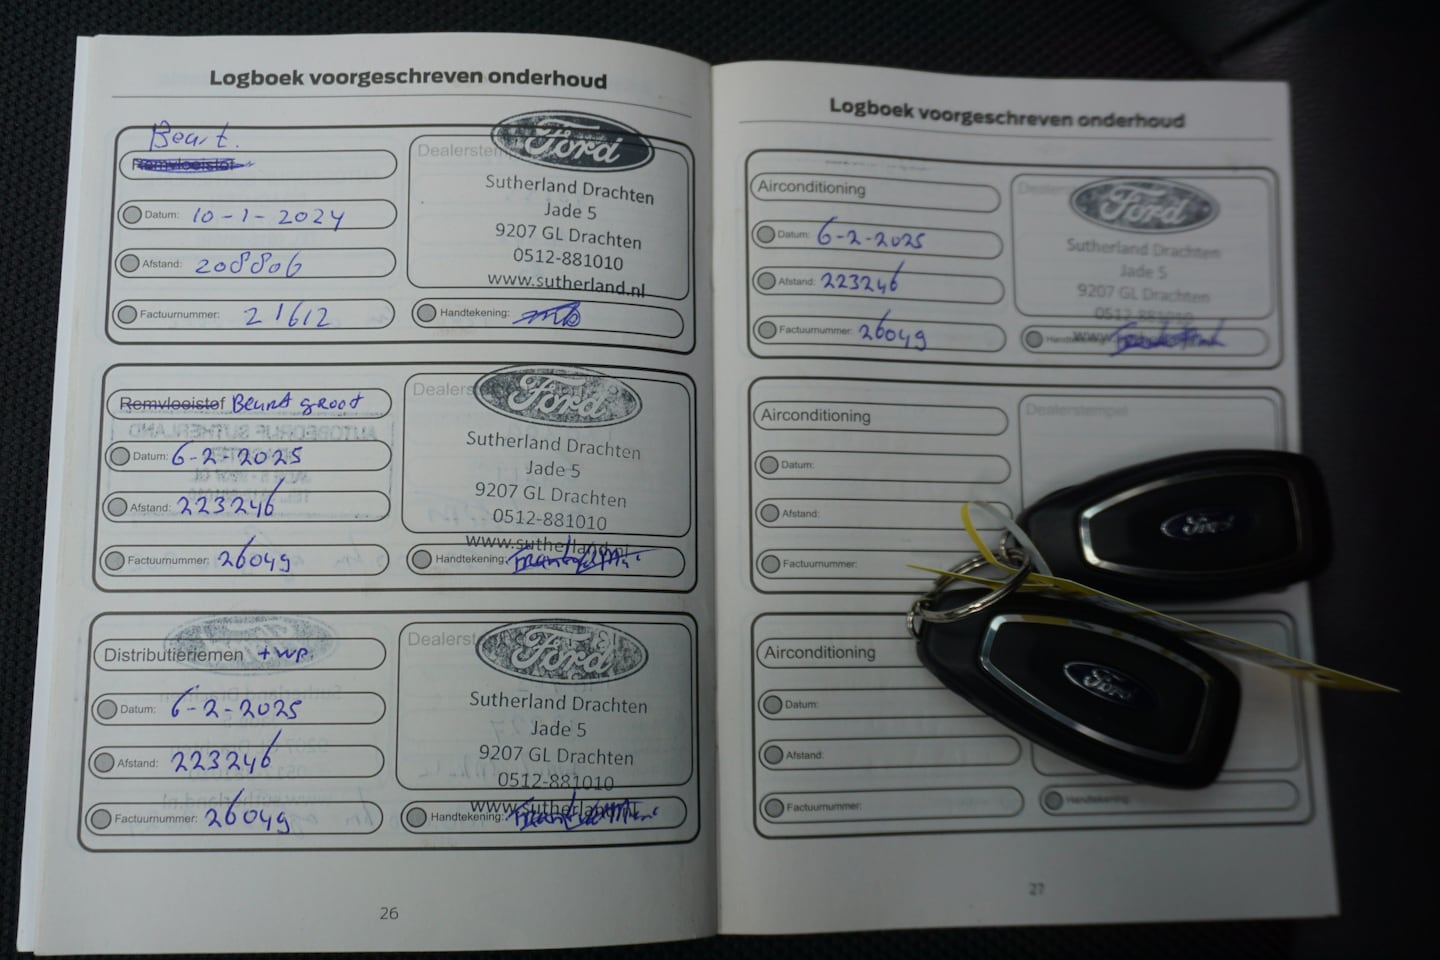 Logboek voorgeschreven onderhoud
Beurt.
Remvloeistof
Datum: 10-1-2024
Afstand: 208806
Factuurnummer: 21612
Dealerstempel
Ford
Sutherland Drachten
Jade 5
9207 GL Drachten
0512-881010
www.sutherland.nl
Handtekening:
Remvloeistof Beurt groot
Datum: 6-2-2025
Afstand: 223246
Factuurnummer: 26049
Dealerstempel
Ford
Sutherland Drachten
Jade 5
9207 GL Drachten
0512-881010
www.sutherland.nl
Handtekening:
Distributieriemen + wp.
Datum: 6-2-2025
Afstand: 223246
Factuurnummer: 26049
Dealerstempel
Ford
Sutherland Drachten
Jade 5
9207 GL Drachten
0512-881010
www.sutherland.nl
Handtekening:
26
Logboek voorgeschreven onderhoud
Airconditioning
Datum: 6-2-2025
Afstand: 223246
Factuurnummer: 26049
Dealerstempel
Ford
Sutherland Drachten
Jade 5
9207 GL Drachten
0512-881010
Handtekening:
Airconditioning
Datum:
Afstand:
Factuurnummer:
Dealerstempel
Airconditioning
Datum:
Afstand:
Factuurnummer:
Handtekening:
27
Ford
Ford